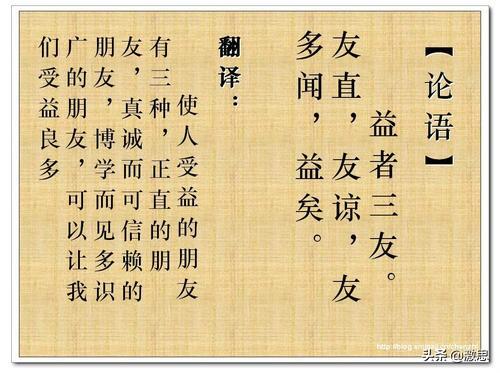 【论语】
益者三友。
友直，友谅，友
多闻，益矣。
翻译：
使人受益的朋友
有三种，正直的朋
友，真诚而可信赖的
朋友，博学而见多识
广的朋友，可以让我
们受益良多
头条